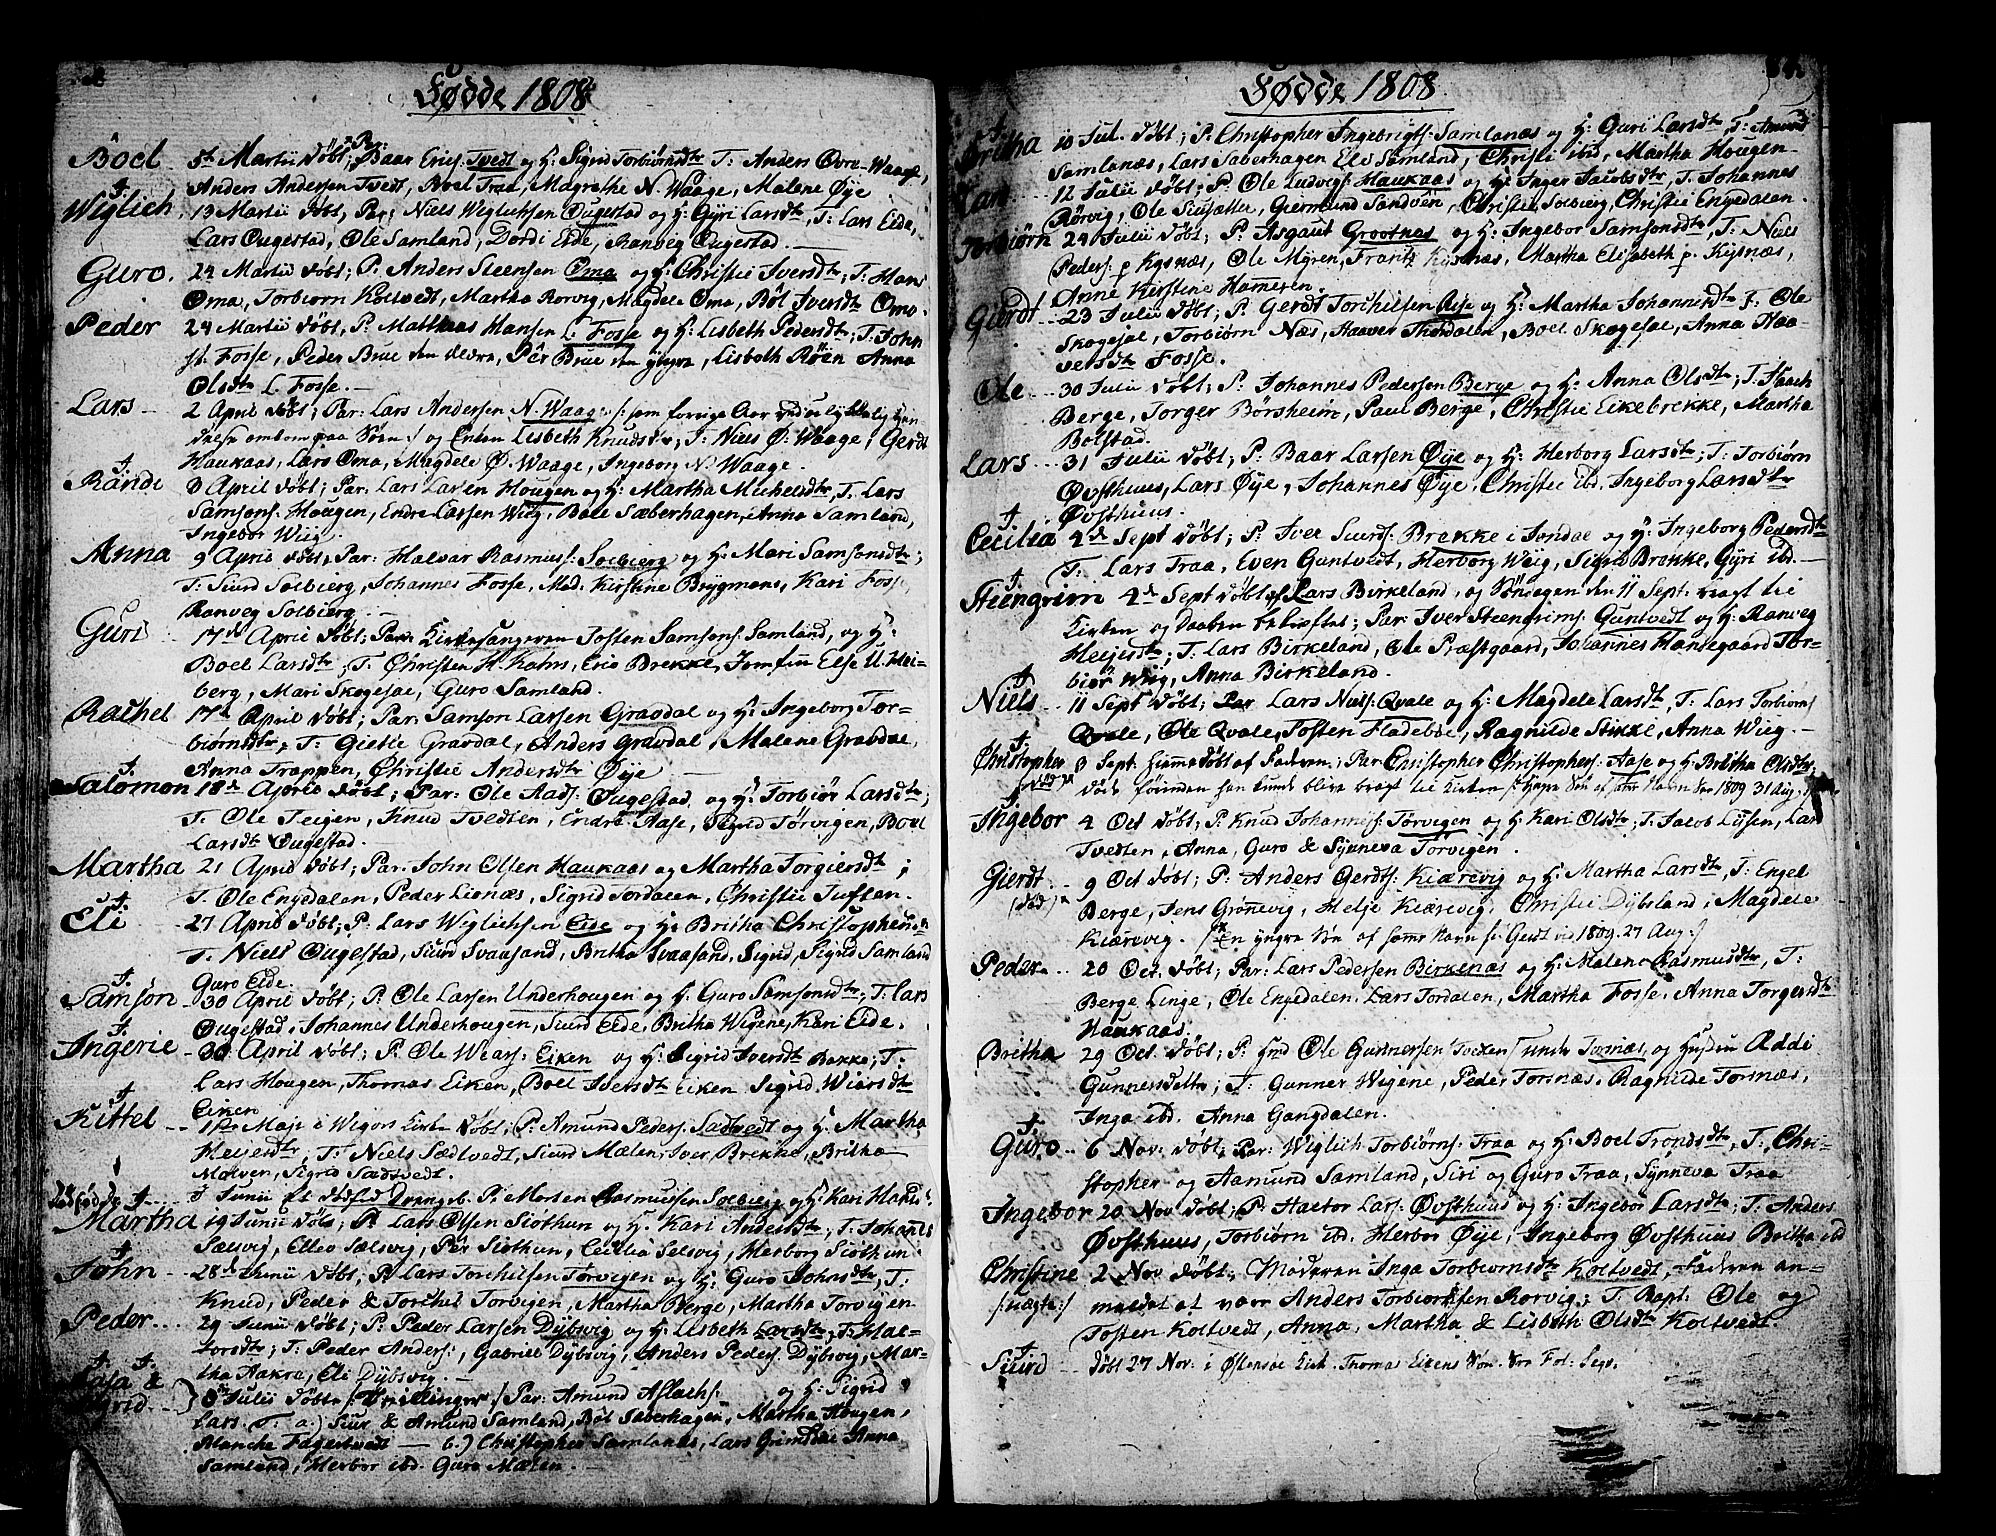 Fødde 1808
Boel 5te Martii døbt; Par: Baar Erics: Tvedt og H: Sigrid Torbiørnsdtr T: Anders Øvre-Waage,
Anders Andersen Tvedt, Boel Traa, Magrethe N. Waage, Malene Øye
Wiglich 13 Martii døbt, Par: Niels Wiglichsen Ougestad og H: Gyri Larsdtr, T: Lars Eide,
Lars Ougestad, Ole Samland, Dordi Eide, Ranveig Ougestad.
Guro. 24 Martii døbt; P: Anders Steensen Oma og H: Christie Iversdtr; T: Hans
Oma, Torbiørn Koltvedt, Martha Rorvig, Magdele Oma, Bøl Iversdtr Omo.
Peder 24 Martii døbt, P: Matthias Hansen L. Fosse og H: Lisbeth Pedersdtr; T: John
st. Fosse, Peder Brue den ældre, Pêr Brue den yngre, Lisbeth Røen Anna
Olsdtr L. Fosse.
Lars 2 April døbt; Par: Lars Andersen N. Waage /: som forrige Aar ved ulykkelig hæn
delse omkom paa Søen :/ og Enken Lisbeth Knudsdtr; T: Niels Ø: Waage, Gerdt
Haukaas, Lars Oma, Magdele Ø. Waage, Ingeborg N. Waage.
Randi 8 April døbt; Par: Lars Larsen Hougen og H: Martha Michelsdtr, T: Lars
Samsons: Hougen, Endre Larsen Wiig, Boel Sæberhagen, Anna Samland,
Ingebor Wiig.
Anna 9 April døbt, Par: Halvar Rasmus: Solbierg og H: Mari Samsonsdtr;
T: Siurd Solbierg, Johannes Fosse, Mad. Kirstine Brygmans, Kari Fosse
Ranveg Solbierg.
Guri 17de April døbt; Par: Kirkesangeren Tosten Samsons: Samland, og H:
Boel Larsdtr; T: Christen H. Kahrs, Eric Brekke, Jomfru Else U. Hei-
berg, Mari Skogesæl, Guro Samland.
Rachel 17de April døbt; Par: Samson Larsen Gravdal og H: Ingeborg Tor-
biørnsdtr, T: Giertie Gravdal, Anders Gravdal, Malene Gravdal,
Anna Trappen, Christie Andersdtr Øye
Salomon 18de April døbt; Par: Ole Aads: Ougestad og H: Torbiør Larsdtr;
T: Ole Teigen, Knud Tvedten, Endre Aase, Sigrid Torvigen, Boel
Larsdtr Ougestad.
Martha 21 April døbt; Par. John Olsen Haukaas og Martha Torgiersdtr;
T: Ole Engedalen, Peder Lionæs, Sigrid Tordalen, Christie Tuften.
Eli 27 April døbt; P: Lars Wiglichsen Eide og H: Britha Christophersdtr
T: Niels Ougestad, Siurd Svaasand, Britha Svaasand, Sigrid, Sigrid Samland
Guro Eide.
Samson 30 April døbt; P: Ole Larsen Underhougen og H: Guro Samsonsdtr; T: Lars
Ougestad, Johannes Underhougen, Siurd Eide, Britha Wigene, Kari Eide.
Ingerie 30 April døbt; P: Ole Wears: Eiken og H: Sigrid Iversdtr Bakke; T:
Lars Hougen, Thomas Eiken, Boel Iversdtr Eiken Sigrid Wiersdtr
Eiken
Kittel 1ste Maji i Wigørs Kirke døbt; P: Amund Peders: Sædtvedt og H: Martha
Heljesdtr, T: Niels Sædtvedt, Siurd Mælen, Iver Brekke, Britha
Mælven, Sigrid Sædtvedt.
Dødfødde 8 Junii et dødfød Drengeb. P: Morten Rasmussen Solbierg og H: Kari
Martha 19 Junii døbt; P: Lars Olsen Siothun og H: Kari Andersdtr; T: Johannes
Sælsvig, Ellev Sælsvig, Pêr Siothun, Cecilia Selsvig, Herborg Siothun
John 28de Junii døbt; P: Lars Torchilsen Torvigen og H: Guro Johnsdtr; T:
Knud, Peder & Torchel Torvigen, Martha Berge, Martha Torvigen
Peder 29 Junii døbt; P: Peder Larsen Dybsvig og H: Lisbeth Larsdtr, T: Hal-
vorsdtr; T: Peder Anders:, Gabriel Dybsvig, Anders Peders: Dybsvig, Mar-
tha Aakra, Eli Dybsvig.
& Sigrid } 8 Julii døbte /: Tvillinger :/ Par: Amund Aslachs: og H: Sigrid
Lars. T. a.) Siur & Amund Samland, Bøl Sæberhagen, Martha Hougen,
Blanche Fagertvedt — b.) Christopher Samlanæs, Lars Grimdal Anna
Samland, Herbor ibd. Guro Mælen.
Fødde 1808
Britha 10 Jul. døbt; P: Christopher Ingebrigts: Samlanæs og H: Guri Larsdtr T: Amund
Samlanæs, Lars Sæberhagen Elv Samland, Christi ibd, Martha Hougen
Kari 12 Julii døbt; P: Ole Ludvigs: Haukaas og H: Inger Jacobsdtr, T. Johannes
Rørvig, Ole Siusætter, Giermund Sandven, Christi Solbierg, Christie Engedalen.
Torbiørn 24 Julii døbt; P: Asgaut Grootnes og H: Ingebor Samsonsdtr, T: Niels
Peders: p Kysnæs, Ole Myren, Frantz Kysnæs, Martha Elisabeth p. Kysnæs,
Anne Kirstine Hameren.
Gierdt 23 Julii døbt; P: Gerdt Torchilsen Øye og H: Martha Johannesdtr T: Ole
Skogesæl, Torbiørn Næs, Haaver Thordalen, Boel Skogesæl, Anna Haa-
versdtr Fosse.
Ole 30 Julii døbt; P: Johannes Pedersen Berge og H: Anna Olsdtr; T: Isaach
Berge, Torger Børsheim, Paul Berge, Christie Eikebrekke, Martha
Bolstad.
Lars 31 Julii døbt; P: Baar Larsen Øye og H: Herborg Larsdtr; T: Torbiørn
Øvsthuus, Lars Øye, Johannes Øye, Christie ibd. Ingeborg Larsdtr
Øvsthuus.
Cecilia 4de Sept døbt; P: Iver Siurds: Brekke i Jondal og H: Ingeborg Pedersdtr
T: Lars Traa, Even Guntvedt, Herborg Wiig, Sigrid Brekke, Gyri ibd.
Steengrim 4de Sept døbt af Lars Birkeland, og Søndagen den 11 Sept. bragt til
Kirken og Daaben bekræftet; Par: Iver Steengrims: Guntvedt og H: Ranveg
Heljesdtr; T. Lars Birkeland, Ole Præstgaard, Johannes Hansegaard Tor-
biør Wiig, Anna Birkeland.
Niels 11 Sept døbt; Par Lars Niels: Qvale og H: Magdele Larsdtr, T: Lars Torbiørns
Qvale, Ole Qvale, Tosten Fladebøe, Ragnilde Stikke, Anna Wiig.
Christopher 8 Sept. hjemedøbt af Faderen; Par: Christopher Christophers: Aase og H: Britha Olsdtr;
døde førinden han kunde blive bragt til Kirken /: yngre Søn af samme Navn See 1809 31 Aug.
Ingebor 4 Oct døbt; P: Knud Johannes: Torvigen og H: Kari Olsdtr; T: Jacob Lijsen, Lars
Tvedten, Anna, Guro & Synneva Torvigen.
Gierdt /: død :/ 9 Oct døbt; P: Anders Gerdts: Kiærevig og H: Martha Larsdtr, T: Engel
Berge, Jens Grønevig, Helje Kiærevig, Christie Dybsland, Magdele
Kiærevig. /: En yngre Søn af samme Navn s: Gerdt ved 1809. 27 Aug :/
Peder 20 Oct. døbt; Par: Lars Pedersen Birkenæs og H: Malene Rasmusdtr, T:
Berge Linge, Ole Engedalen. Lars Tordalen, Martha Fosse, Anna Torgersdtr
Haukaas.
Britha 29 Oct døbt; P: Hnd Ole Gunnersen Tvedten / unde Torsnæs, og Hustru Addi
Gunnersdatter; T: Gunner Wigene, Peder Torsnæs, Ragnilde Torsnæs,
Inga ibd. Anna Gangdalen.
Guro 6 Nov: døbt; Par: Wiglich Torbiørns: Traa og H: Boel Trondsdtr, T: Chri-
stopher og Aamund Samland, Siri og Guro Traa, Synneva Traa
Ingebor 20 Nov døbt; P: Hactor Lars: Øvsthuus og H: Ingebor Larsdtr; T: Anders
Øvsthuus, Torbiørn ibd. Herbor Øye, Ingeborg Øvsthuus Britha ibd
Christine 2 Nov døbt; Moderen Inga Torbiornsdtr Koltvedt, Faderen an-
/: uægte :/ meldet at være Anders Torbiørnsen Rorvig; T. Bapt: Ole og
Tosten Koltvedt, Anna, Martha & Lisbeth Olsdtr Koltvedt
Siurd døbt 27 Nov. i Østensøe Kirk. Thomas Eikens Søn. See Fol: Seqv.